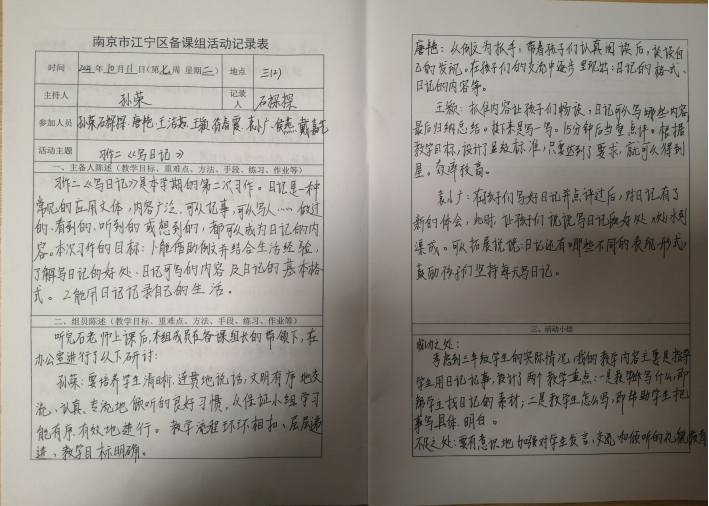 南京市江宁区备课组活动记录表
时间 2021年10月11日(第七周 星期二) 地点 三(2)
主持人 孙荣 记录人 石探探
参加人员 孙荣 石探探 唐艳 王洁 王颖 徐春霞 袁小广 侯燕
活动主题 习作二《写日记》
一、主备人陈述（教学目标、重难点、方法、手段、练习、作业等）
习作二《写日记》是本学期的第二次习作。日记是一种
常见的应用文体，内容广泛，可以记事，可以写人……做过
的、看到的、听到的或想到的，都可以成为日记的内
容。本次习作的目标：1、能借助例文并结合生活经验，
了解写日记的好处、日记可写的内容及日记的基本格
式。2、能用日记记录自己的生活。
二、组员陈述（教学目标、重难点、方法、手段、练习、作业等）
听完石老师上课后，本组成员在备课组长的带领下，在
办公室进行了以下研讨：
孙荣：要培养学生清晰、连贯地说话，文明有序地交
流、认真、专注地倾听的良好习惯，从保证小组学习
能有序有效地进行。教学流程环环相扣、层层递
进，教学目标明确。
唐艳：以例文为扶手，带着孩子们认真阅读后，谈谈自
己的发现。在孩子们的交流中逐步呈现出：日记的格式、
日记的内容等。
王颖：抓住内容让孩子们畅谈，日记可以写哪些内容
最后归纳总结。接下来写一写。15分钟后当堂点评。根据
教学目标，设计星级标准，只要达到了要求，就可以得到
星。效率较高。
袁小广：在孩子们写好日记并点评过后，对日记有了
新的体会，此时，让孩子们说说写日记的好处，水到
渠成。可以拓展说说：日记还有哪些不同的表现形式，
鼓励孩子们坚持每天写日记。
三、活动小结
成功之处：
考虑到三年级学生的实际情况，我的教学内容主要是指导
学生用日记记事，设计了两个教学重点：一是教学生写什么，即
帮学生找日记的素材；二是教学生怎么写，即帮助学生把
事写具体、明白。
不足之处：要有意识地加强对学生发言、交流和倾听的礼貌教育